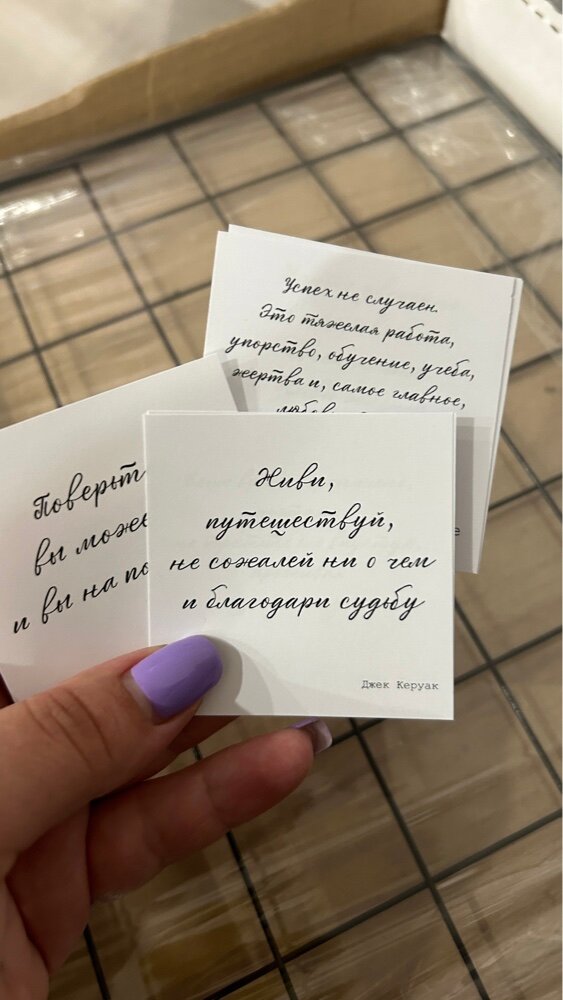 Успех не случаен.
Это тяжелая работа,
упорство, обучение, учеба,
жертва и, самое главное,
вы
и вы на
Живи,
путешествуй,
не сожалей ни о чем
и благодари судьбу
Джек Керуак